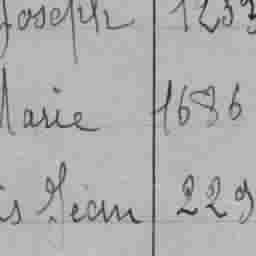 Joseph 1233
Marie 1686
is Jean 229